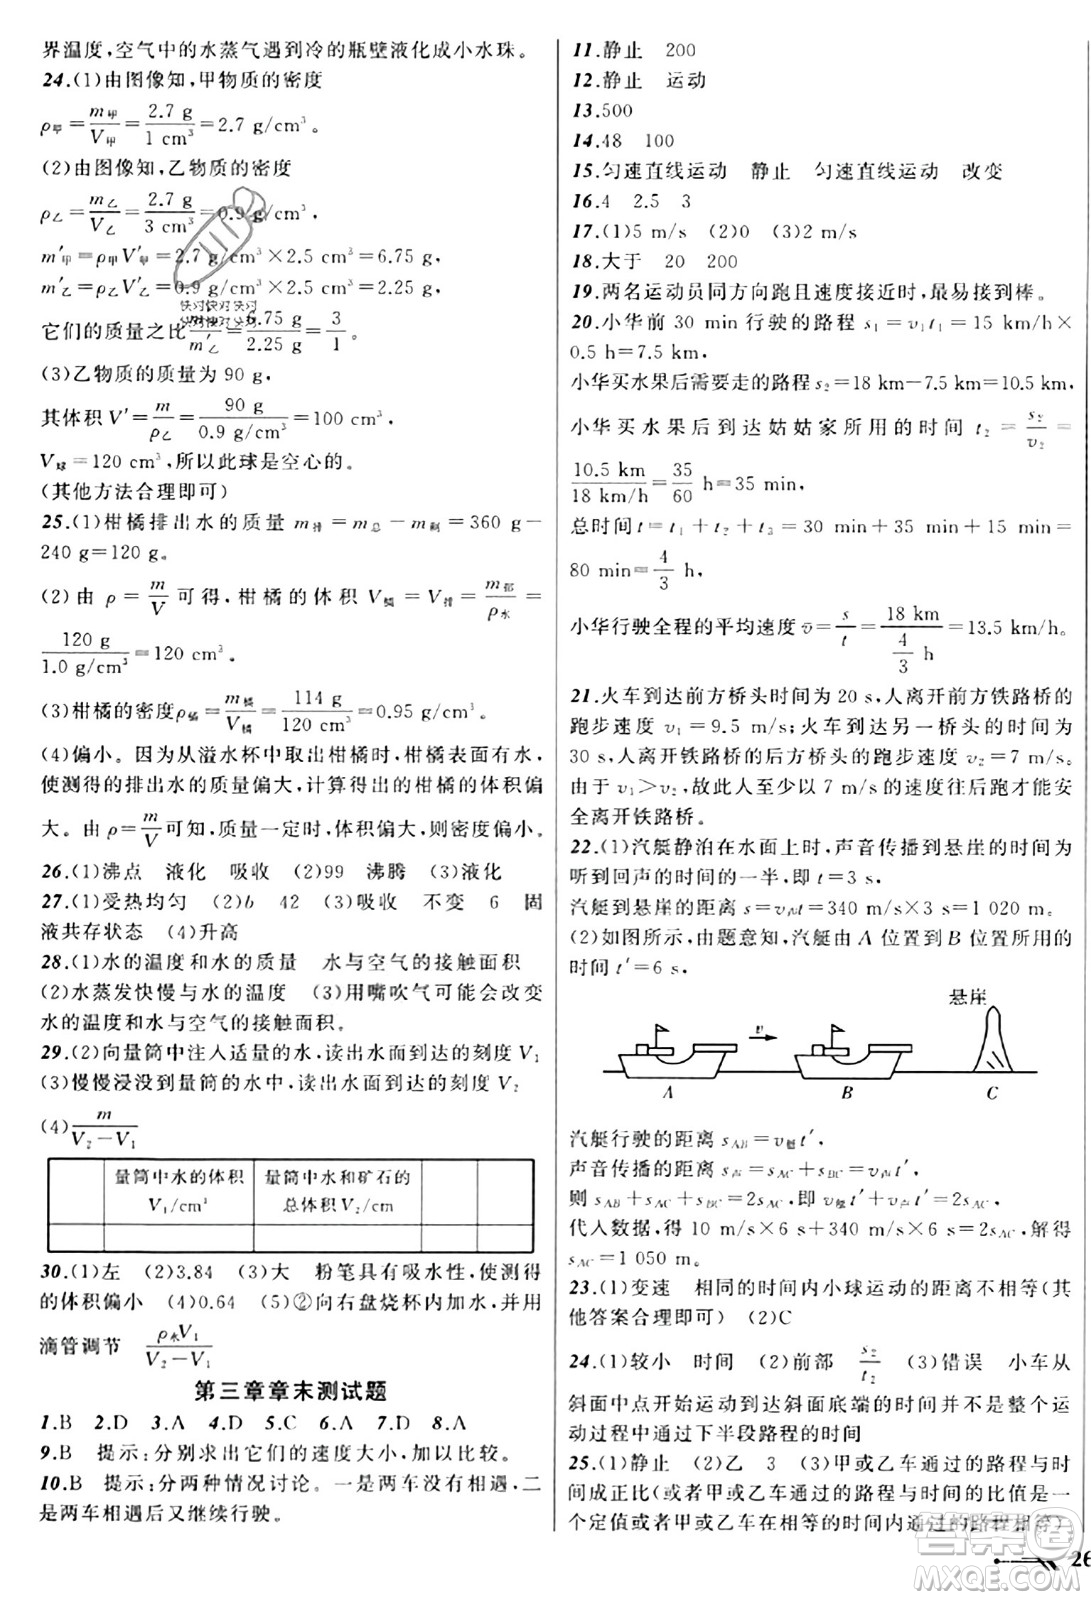 界温度,空气中的水蒸气遇到冷的瓶壁液化成小水珠。
24.(1)由图像知,甲物质的密度
ρ甲=m甲/V甲=2.7 g/1 cm³=2.7 g/cm³。
(2)由图像知,乙物质的密度
ρ乙=m乙/V乙=2.7 g/3 cm³=0.9 g/cm³,
m′甲=ρ甲V′=2.7 g/cm³×2.5 cm³=6.75 g,
m′乙=ρ乙V′=0.9 g/cm³×2.5 cm³=2.25 g,
它们的质量之比m′甲/m′乙=6.75 g/2.25 g=3/1
(3)乙物质的质量为 90 g,
其体积 V′=m/ρ乙=90 g/0.9 g/cm³=100 cm³,
V球=120 cm³,所以此球是空心的。
(其他方法合理即可)
25.(1)柑橘排出水的质量 m排=m总-m剩=360 g-
240 g=120 g。
(2)由 ρ=m/V 可得,柑橘的体积 V橘=V排=m排/ρ水=
120 g/1.0 g/cm³=120 cm³。
(3)柑橘的密度ρ橘=m橘/V橘=114 g/120 cm³=0.95 g/cm³。
(4)偏小。因为从溢水杯中取出柑橘时,柑橘表面有水,
使测得的排出水的质量偏大,计算得出的柑橘体积偏
大。由 ρ=m/V可知,质量一定时,体积偏大,则密度偏小。
26.(1)沸点 液化 吸收 (2)99 沸腾 (3)液化
27.(1)受热均匀 (2)b 42 (3)吸收 不变 6 固
液共存状态 (4)升高
28.(1)水的温度和水的质量 水与空气的接触面积
(2)水蒸发快慢与水的温度 (3)用嘴吹气可能会改变
水的温度和水与空气的接触面积。
29.(2)向量筒中注入适量的水,读出水面到达的刻度 V₁
(3)慢慢浸没到量筒的水中,读出水面到达的刻度 V₂
(4)m/V₂-V₁
量筒中水的体积 V₁/cm³
量筒中水和矿石的总体积 V₂/cm³
30.(1)左 (2)3.84 (3)大 粉笔具有吸水性,使测得
的体积偏小 (4)0.64 (5)②向右盘烧杯内加水,并用
滴管调节 ρ水V₁/V₂-V₁
第三章章末测试题
1.B 2.D 3.A 4.D 5.C 6.A 7.D 8.A
9.B 提示:分别求出它们的速度大小,加以比较。
10.B 提示:分两种情况讨论。一是两车没有相遇,二
是两车相遇后又继续行驶。
11.静止 200
12.静止 运动
13.500
14.48 100
15.匀速直线运动 静止 匀速直线运动 改变
16.4 2.5 3
17.(1)5 m/s (2)0 (3)2 m/s
18.大于 20 200
19.两名运动员同方向跑且速度接近时,最易接到棒。
20.小华前 30 min 行驶的路程 s₁=v₁t₁=15 km/h×
0.5 h=7.5 km,
小华买水果后需要走的路程 s₂=18 km-7.5 km=10.5 km,
小华买水果后到达姑姑家所用的时间 t₂=s₂/v₂=
10.5 km/18 km/h=35/60 h=35 min,
总时间 t=t₁+t₂+t₃=30 min+35 min+15 min=
80 min=4/3 h,
小华行驶全程的平均速度 v̄=s/t=18 km/(4/3 h)=13.5 km/h。
21.火车到达前方桥头时间为 20 s,人离开前方铁路桥的
跑步速度 v₁=9.5 m/s;火车到达另一桥头的时间为
30 s,人离开铁路桥的后方桥头的跑步速度 v₂=7 m/s。
由于 v₁>v₂,故此人至少以 7 m/s 的速度后跑才能安
全离开铁路桥。
22.(1)汽艇静泊在水面上时,声音传播到悬崖的时间为
听到回声的时间的一半,即 t=3 s,
汽艇到悬崖的距离 s=v声t=340 m/s×3 s=1 020 m。
(2)如图所示,由题意知,汽艇由 A 位置到 B 位置所用的
时间 t′=6 s,
悬崖
v
A B C
汽艇行驶的距离 sAB=v艇t′,
声音传播的距离 s声=sAC+sBC=v声t′,
则 sAB+sAC+sBC=2sAC,即 v艇t′+v声t′=2sAC,
代入数据,得 10 m/s×6 s+340 m/s×6 s=2sAC,解得
sAC=1 050 m。
23.(1)变速 相同的时间内小球运动的距离不相等(其
他答案合理即可) (2)C
24.(1)较小 时间 (2)前部 s₂/t₂ (3)错误 小车从
斜面中点开始运动到达斜面底端的时间并不等于全程
运动过程中通过下半段路程的时间
25.(1)静止 (2)乙 3 (3)甲或乙车通过的路程与时
间成正比(或者甲或乙车通过的路程与时间的比值是一
个定值或者甲或乙车在相等的时间内通过的路程相等)
26
答案圈
MXQE.COM